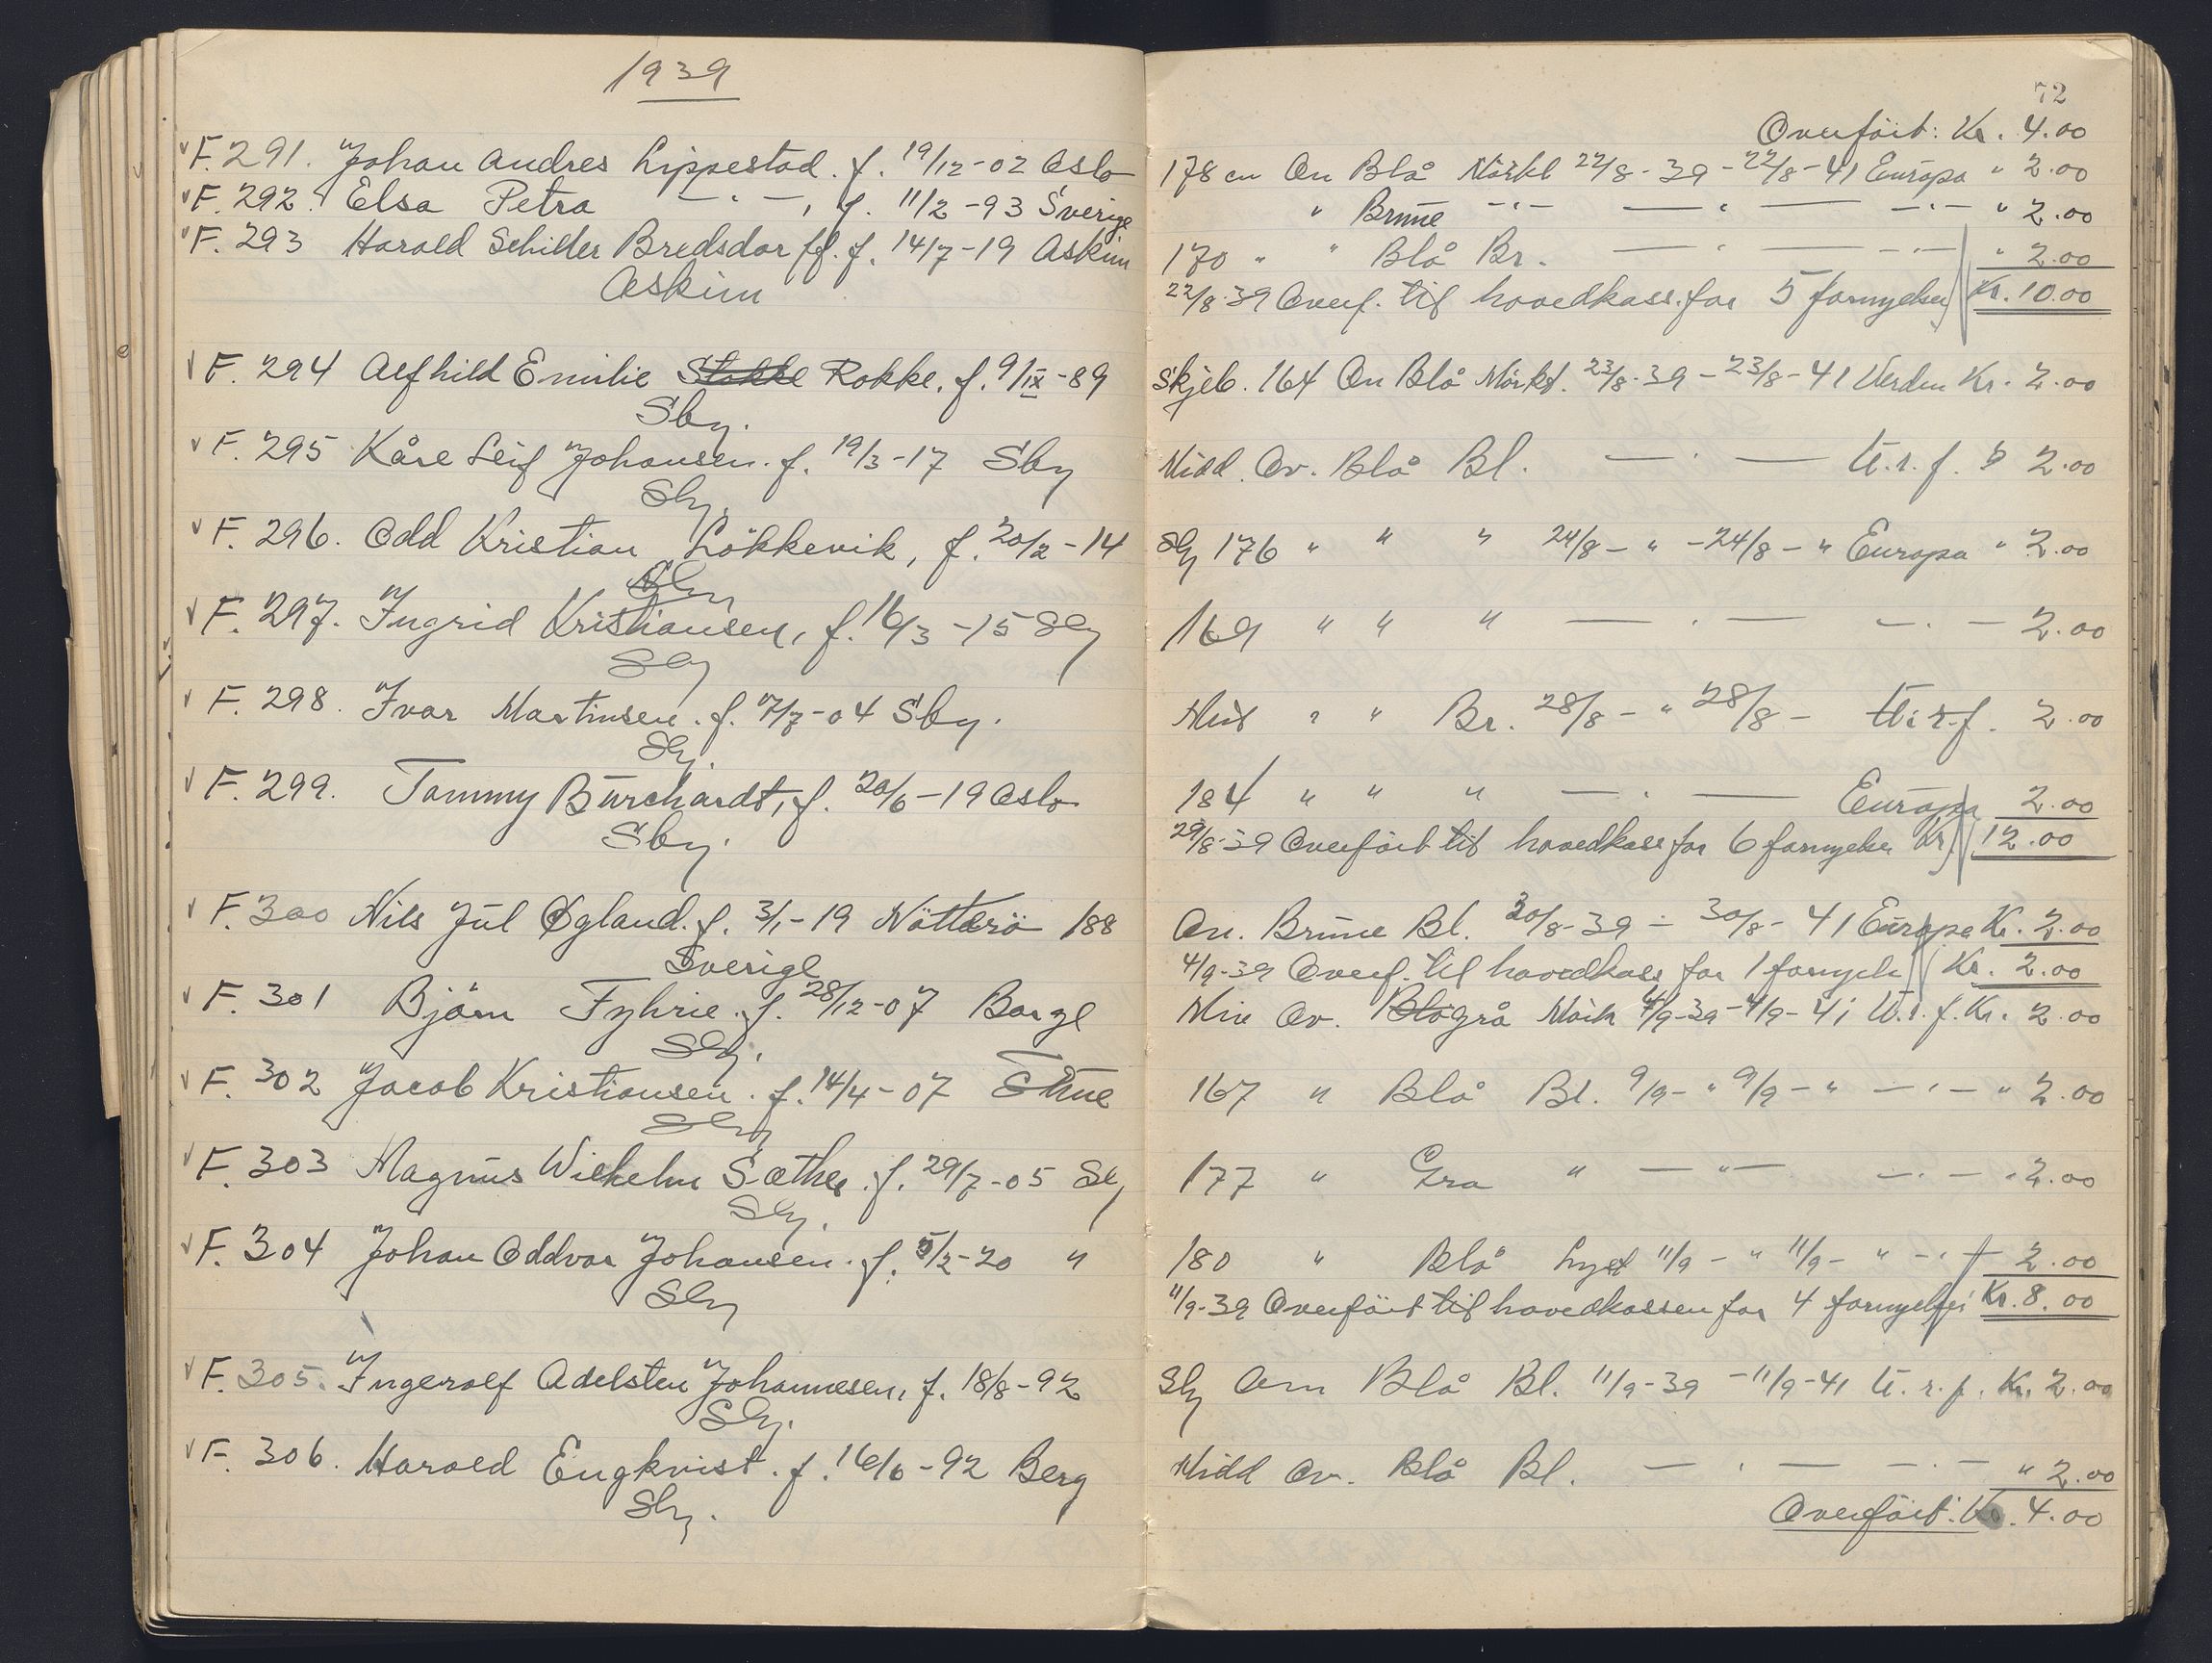 1939
F. 291. Johan Andres Lippestad. f. 19/12-02 Oslo
F. 292. Elsa Petra — " — , f. 11/2-93 Sverige
F. 293 Harald Schiller Bredsdorff. f. 14/7-19 Askim
Askim
F. 294 Alfhild Emilie Stokke Rokke. f. 9/IX-89
Sbg.
F. 295 Kåre Leif Johansen. f. 19/3-17 Sbg
Sbg.
F. 296. Odd Kristian Lökkevik, f. 20/2-14
Sbg
F. 297. Ingrid Kristiansen, f. 16/3-15 Sbg
Sbg
F. 298. Ivar Martinsen. f. 7/7-04 Sbg.
Sbg.
F. 299. Tommy Burchardt, f. 20/6-19 Oslo
Sbg.
F. 300 Nils Jul Øgland. f. 3/1-19 Nötterö 188
Sverige
F. 301 Björn Fyhrie. f. 28/12-07 Borge
Sbg.
F. 302 Jacob Kristiansen. f. 14/4-07 Etne
Sbg
F. 303 Magnus Wilhelm Sæther. f. 29/7-05 Sbg
Sbg.
F. 304 Johan Oddvar Johansen. f. 5/2-20 "
Sbg
F. 305. Ingerolf Adelsten Johannesen, f. 18/8-92
Sbg.
F. 306. Harald Engkvist. f. 16/6-92 Berg
Sbg.
72
Overfört: Kr. 4.00
178 cm Ov Blå Mörkl 22/8-39-22/8-41 Europa " 2.00
" Brune -"- — " — -"- " 2.00
170 " " Blå Br. — " — -"- " 2.00
22/8-39 Overf. til hovedkass. for 5 fornyelser Kr. 10.00
Skjeb. 164 Ov Blå Mörkt. 23/8-39-23/8-41 Verden Kr. 2.00
Midd. Ov. Blå Bl. — " — U.r.f. " 2.00
Sbg 176 " " " 24/8- " -24/8- " Europa " 2.00
169 " " " — " — -"- 2.00
Mid " " Br. 28/8- " 28/8- U.r.f. 2.00
184 " " " — " — Europa 2.00
29/8-39 Overfört til hovedkass for 6 fornyelser Kr. 12.00
Ov. Brune Bl. 30/8-39 - 30/8-41 Europa Kr. 2.00
4/9-39 Overf. til hovedkass for 1 fornyelse Kr. 2.00
Mid Ov. Blågrå Mörk 4/9-39-4/9-41 U.r.f. Kr. 2.00
167 " Blå Bl. 9/9- " 9/9- " -"- " 2.00
177 " Grå " — " — -"- " 2.00
180 " Blå Lyst 11/9- " 11/9- " -"- 2.00
11/9-39 Overfört til hovedkassen for 4 fornyelser Kr. 8.00
Sbg Ov Blå Bl. 11/9-39 -11/9-41 U.r.f. Kr. 2.00
Midd Ov. Blå Bl. — " — -"- " 2.00
Overfört: Kr. 4.00